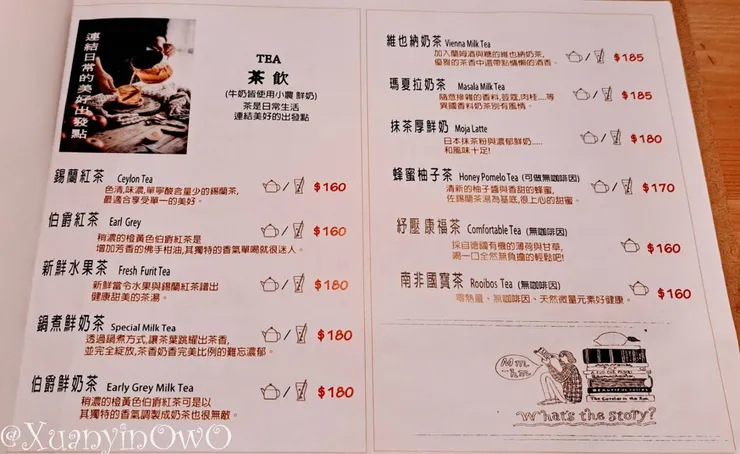 連結日常的美好出發點
TEA
茶 飲
(牛奶皆使用小農 鮮奶)
茶是日常生活
連結美好的出發點
錫蘭紅茶 Ceylon Tea
色清,味濃,單寧酸含量少的錫蘭茶,
最適合享受單一的美好。
$160
伯爵紅茶 Earl Grey
稍濃的橙黃色伯爵紅茶是
增加芳香的佛手柑油,其獨特的香氣單喝就很迷人。
$160
新鮮水果茶 Fresh Furit Tea
新鮮當令水果與錫蘭紅茶譜出
健康甜美的茶湯。
$180
鍋煮鮮奶茶 Special Milk Tea
透過鍋煮方式,讓茶葉跳耀出茶香,
並完全綻放,茶香奶香完美比例的難忘濃郁。
$180
伯爵鮮奶茶 Early Grey Milk Tea
稍濃的橙黃色伯爵紅茶可是以
其獨特的香氣調製成奶茶也很無敵。
$180
維也納奶茶 Vienna Milk Tea
加入蘭姆酒與糖的維也納奶茶,
優雅的茶香中還帶點慵懶的酒香。
$185
瑪夏拉奶茶 Masala Milk Tea
隨意摻雜的香料,荳蔻,肉桂....等
異國香料奶茶別有風情。
$185
抹茶厚鮮奶 Moja Latte
日本抹茶粉與濃郁鮮奶.....
和風味十足!
$180
蜂蜜柚子茶 Honey Pomelo Tea (可做無咖啡因)
清新的柚子醬與香甜的蜂蜜,
佐錫蘭茶湯為基底,很上心的甜蜜。
$170
紓壓 康福茶 Comfortable Tea (無咖啡因)
採自德國有機的薄荷與甘草,
喝一口全然無負擔的輕鬆吧!
$160
南非國寶茶 Rooibos Tea (無咖啡因)
零熱量、無咖啡因、天然微量元素好健康。
$160
What's the story?
@XuanyinOwO